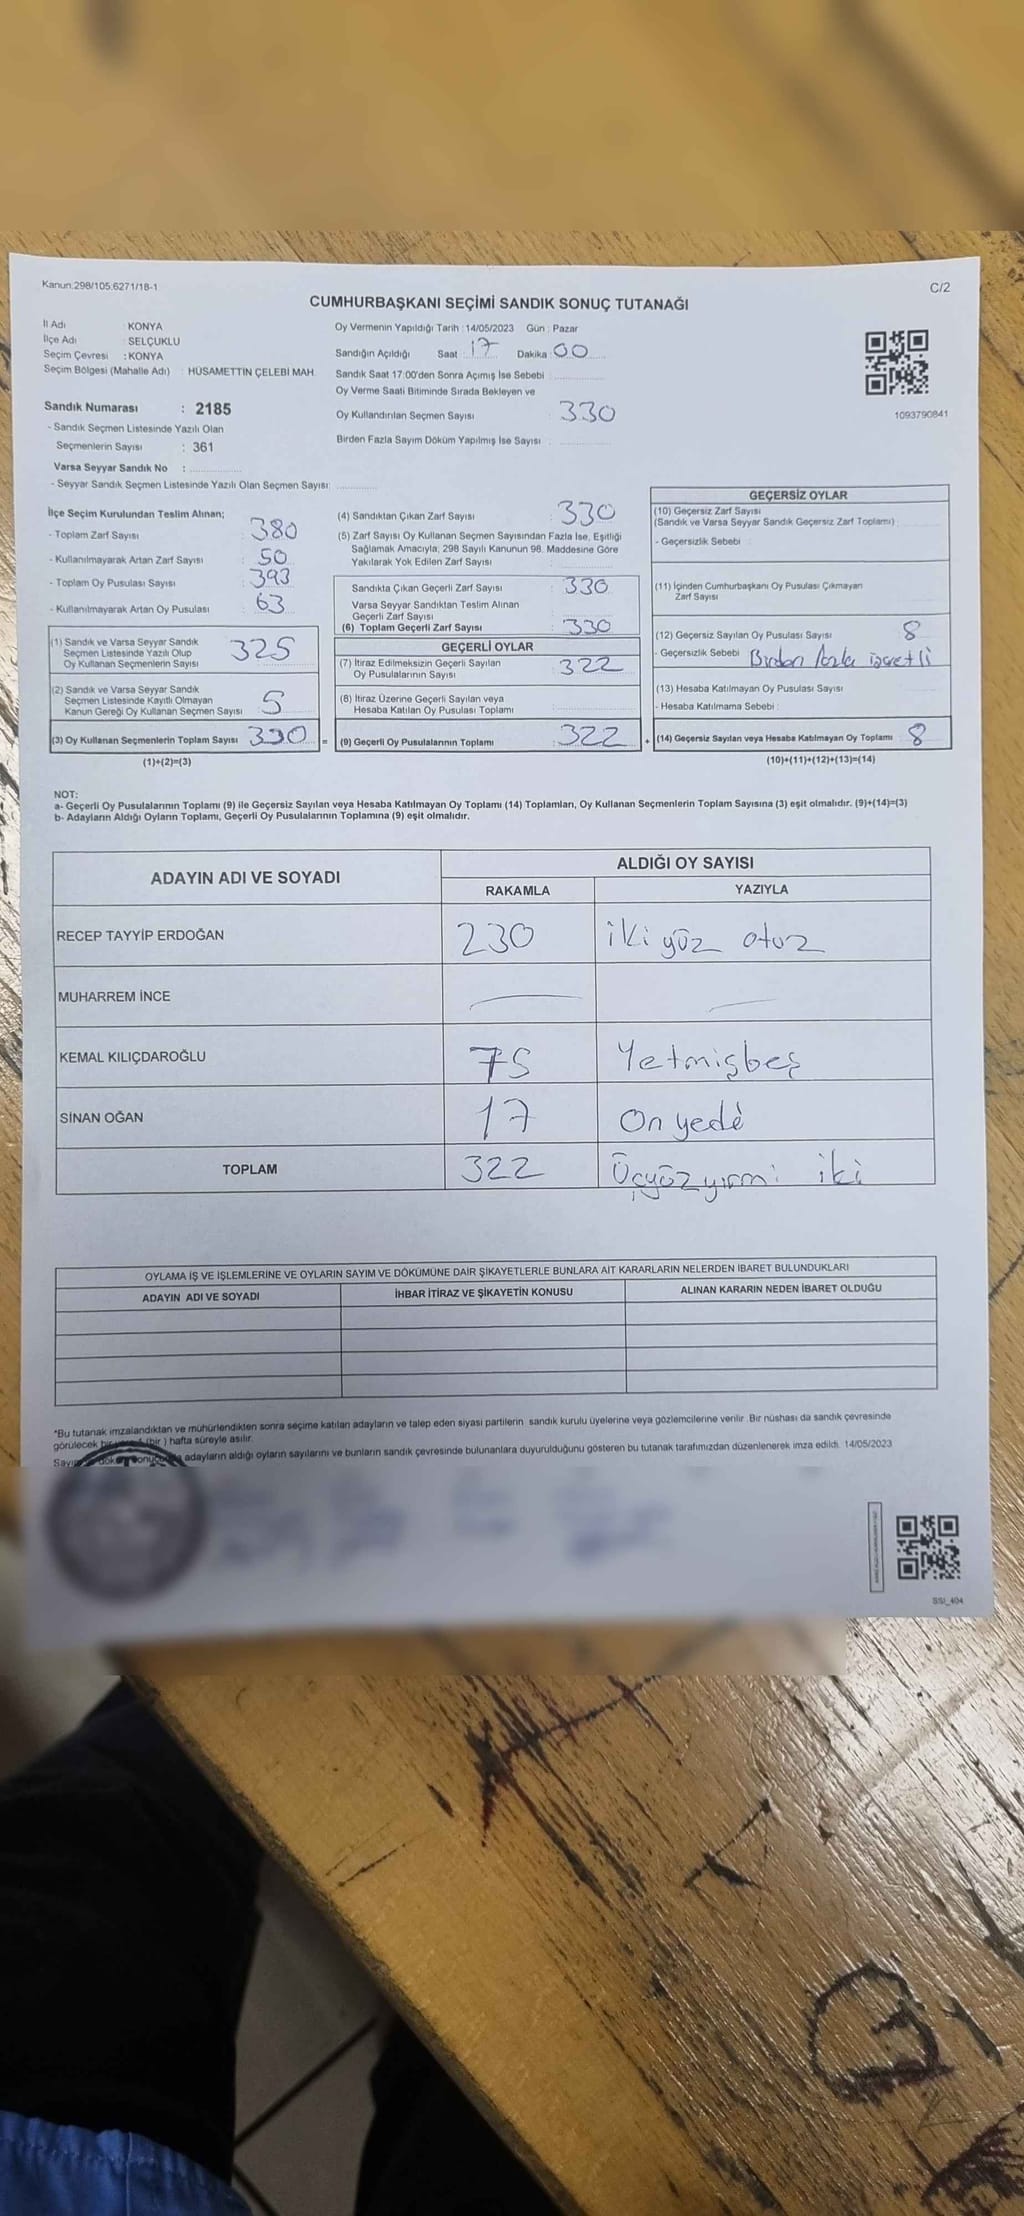 Kanun.298/105.6271/18-1
C/2
CUMHURBAŞKANI SEÇİMİ SANDIK SONUÇ TUTANAĞI
İl Adı : KONYA
İlçe Adı : SELÇUKLU
Seçim Çevresi : KONYA
Seçim Bölgesi (Mahalle Adı) : HÜSAMETTİN ÇELEBİ MAH.
Sandık Numarası : 2185
- Sandık Seçmen Listesinde Yazılı Olan
Seçmenlerin Sayısı : 361
Varsa Seyyar Sandık No :
- Seyyar Sandık Seçmen Listesinde Yazılı Olan Seçmen Sayısı:
Oy Vermenin Yapıldığı Tarih : 14/05/2023 Gün : Pazar
Sandığın Açıldığı Saat : 17 Dakika : 00
Sandık Saat 17:00'den Sonra Açımış İse Sebebi :
Oy Verme Saati Bitiminde Sırada Bekleyen ve
Oy Kullandırılan Seçmen Sayısı : 330
Birden Fazla Sayım Döküm Yapılmış İse Sayısı :
1093790841
İlçe Seçim Kurulundan Teslim Alınan;
- Toplam Zarf Sayısı : 380
- Kullanılmayarak Artan Zarf Sayısı : 50
- Toplam Oy Pusulası Sayısı : 393
- Kullanılmayarak Artan Oy Pusulası : 63
(1) Sandık ve Varsa Seyyar Sandık
Seçmen Listesinde Yazılı Olup
Oy Kullanan Seçmenlerin Sayısı : 325
(2) Sandık ve Varsa Seyyar Sandık
Seçmen Listesinde Kayıtlı Olmayan
Kanun Gereği Oy Kullanan Seçmen Sayısı : 5
(3) Oy Kullanan Seçmenlerin Toplam Sayısı : 330 =
(1)+(2)=(3)
(4) Sandıktan Çıkan Zarf Sayısı : 330
(5) Zarf Sayısı Oy Kullanan Seçmen Sayısından Fazla İse, Eşitliği
Sağlamak Amacıyla, 298 Sayılı Kanunun 98. Maddesine Göre
Yakılarak Yok Edilen Zarf Sayısı :
Sandıkta Çıkan Geçerli Zarf Sayısı : 330
Varsa Seyyar Sandıktan Teslim Alınan
Geçerli Zarf Sayısı :
(6) Toplam Geçerli Zarf Sayısı : 330
GEÇERLİ OYLAR
(7) İtiraz Edilmeksizin Geçerli Sayılan
Oy Pusulalarının Sayısı : 322
(8) İtiraz Üzerine Geçerli Sayılan veya
Hesaba Katılan Oy Pusulası Toplamı :
(9) Geçerli Oy Pusulalarının Toplamı : 322 +
GEÇERSİZ OYLAR
(10) Geçersiz Zarf Sayısı
(Sandık ve Varsa Seyyar Sandık Geçersiz Zarf Toplamı) :
- Geçersizlik Sebebi :
(11) İçinden Cumhurbaşkanı Oy Pusulası Çıkmayan
Zarf Sayısı
(12) Geçersiz Sayılan Oy Pusulası Sayısı 8
- Geçersizlik Sebebi : Birden fazla işaretli
(13) Hesaba Katılmayan Oy Pusulası Sayısı
- Hesaba Katılmama Sebebi :
(14) Geçersiz Sayılan veya Hesaba Katılmayan Oy Toplamı 8
(10)+(11)+(12)+(13)=(14)
NOT:
a- Geçerli Oy Pusulalarının Toplamı (9) ile Geçersiz Sayılan veya Hesaba Katılmayan Oy Toplamı (14) Toplamları, Oy Kullanan Seçmenlerin Toplam Sayısına (3) eşit olmalıdır. (9)+(14)=(3)
b- Adayların Aldığı Oyların Toplamı, Geçerli Oy Pusulalarının Toplamına (9) eşit olmalıdır.
ADAYIN ADI VE SOYADI
ALDIĞI OY SAYISI
RAKAMLA YAZIYLA
RECEP TAYYİP ERDOĞAN 230 iki yüz otuz
MUHARREM İNCE — —
KEMAL KILIÇDAROĞLU 75 Yetmişbeş
SİNAN OĞAN 17 On yedi
TOPLAM 322 Üçyüz yirmi iki
OYLAMA İŞ VE İŞLEMLERİNE VE OYLARIN SAYIM VE DÖKÜMÜNE DAİR ŞİKAYETLERLE BUNLARA AİT KARARLARIN NELERDEN İBARET BULUNDUKLARI
ADAYIN ADI VE SOYADI İHBAR İTİRAZ VE ŞİKAYETİN KONUSU ALINAN KARARIN NEDEN İBARET OLDUĞU
*Bu tutanak imzalandıktan ve mühürlendikten sonra seçime katılan adayların ve talep eden siyasi partilerin sandık kurulu üyelerine veya gözlemcilerine verilir. Bir nüshası da sandık çevresinde
görülecek bir (bir) hafta süreyle asılır.
adayların aldığı oyların sayılarını ve bunların sandık çevresinde bulunanlara duyurulduğunu gösteren bu tutanak tarafımızdan düzenlenerek imza edildi. 14/05/2023
SSI_404